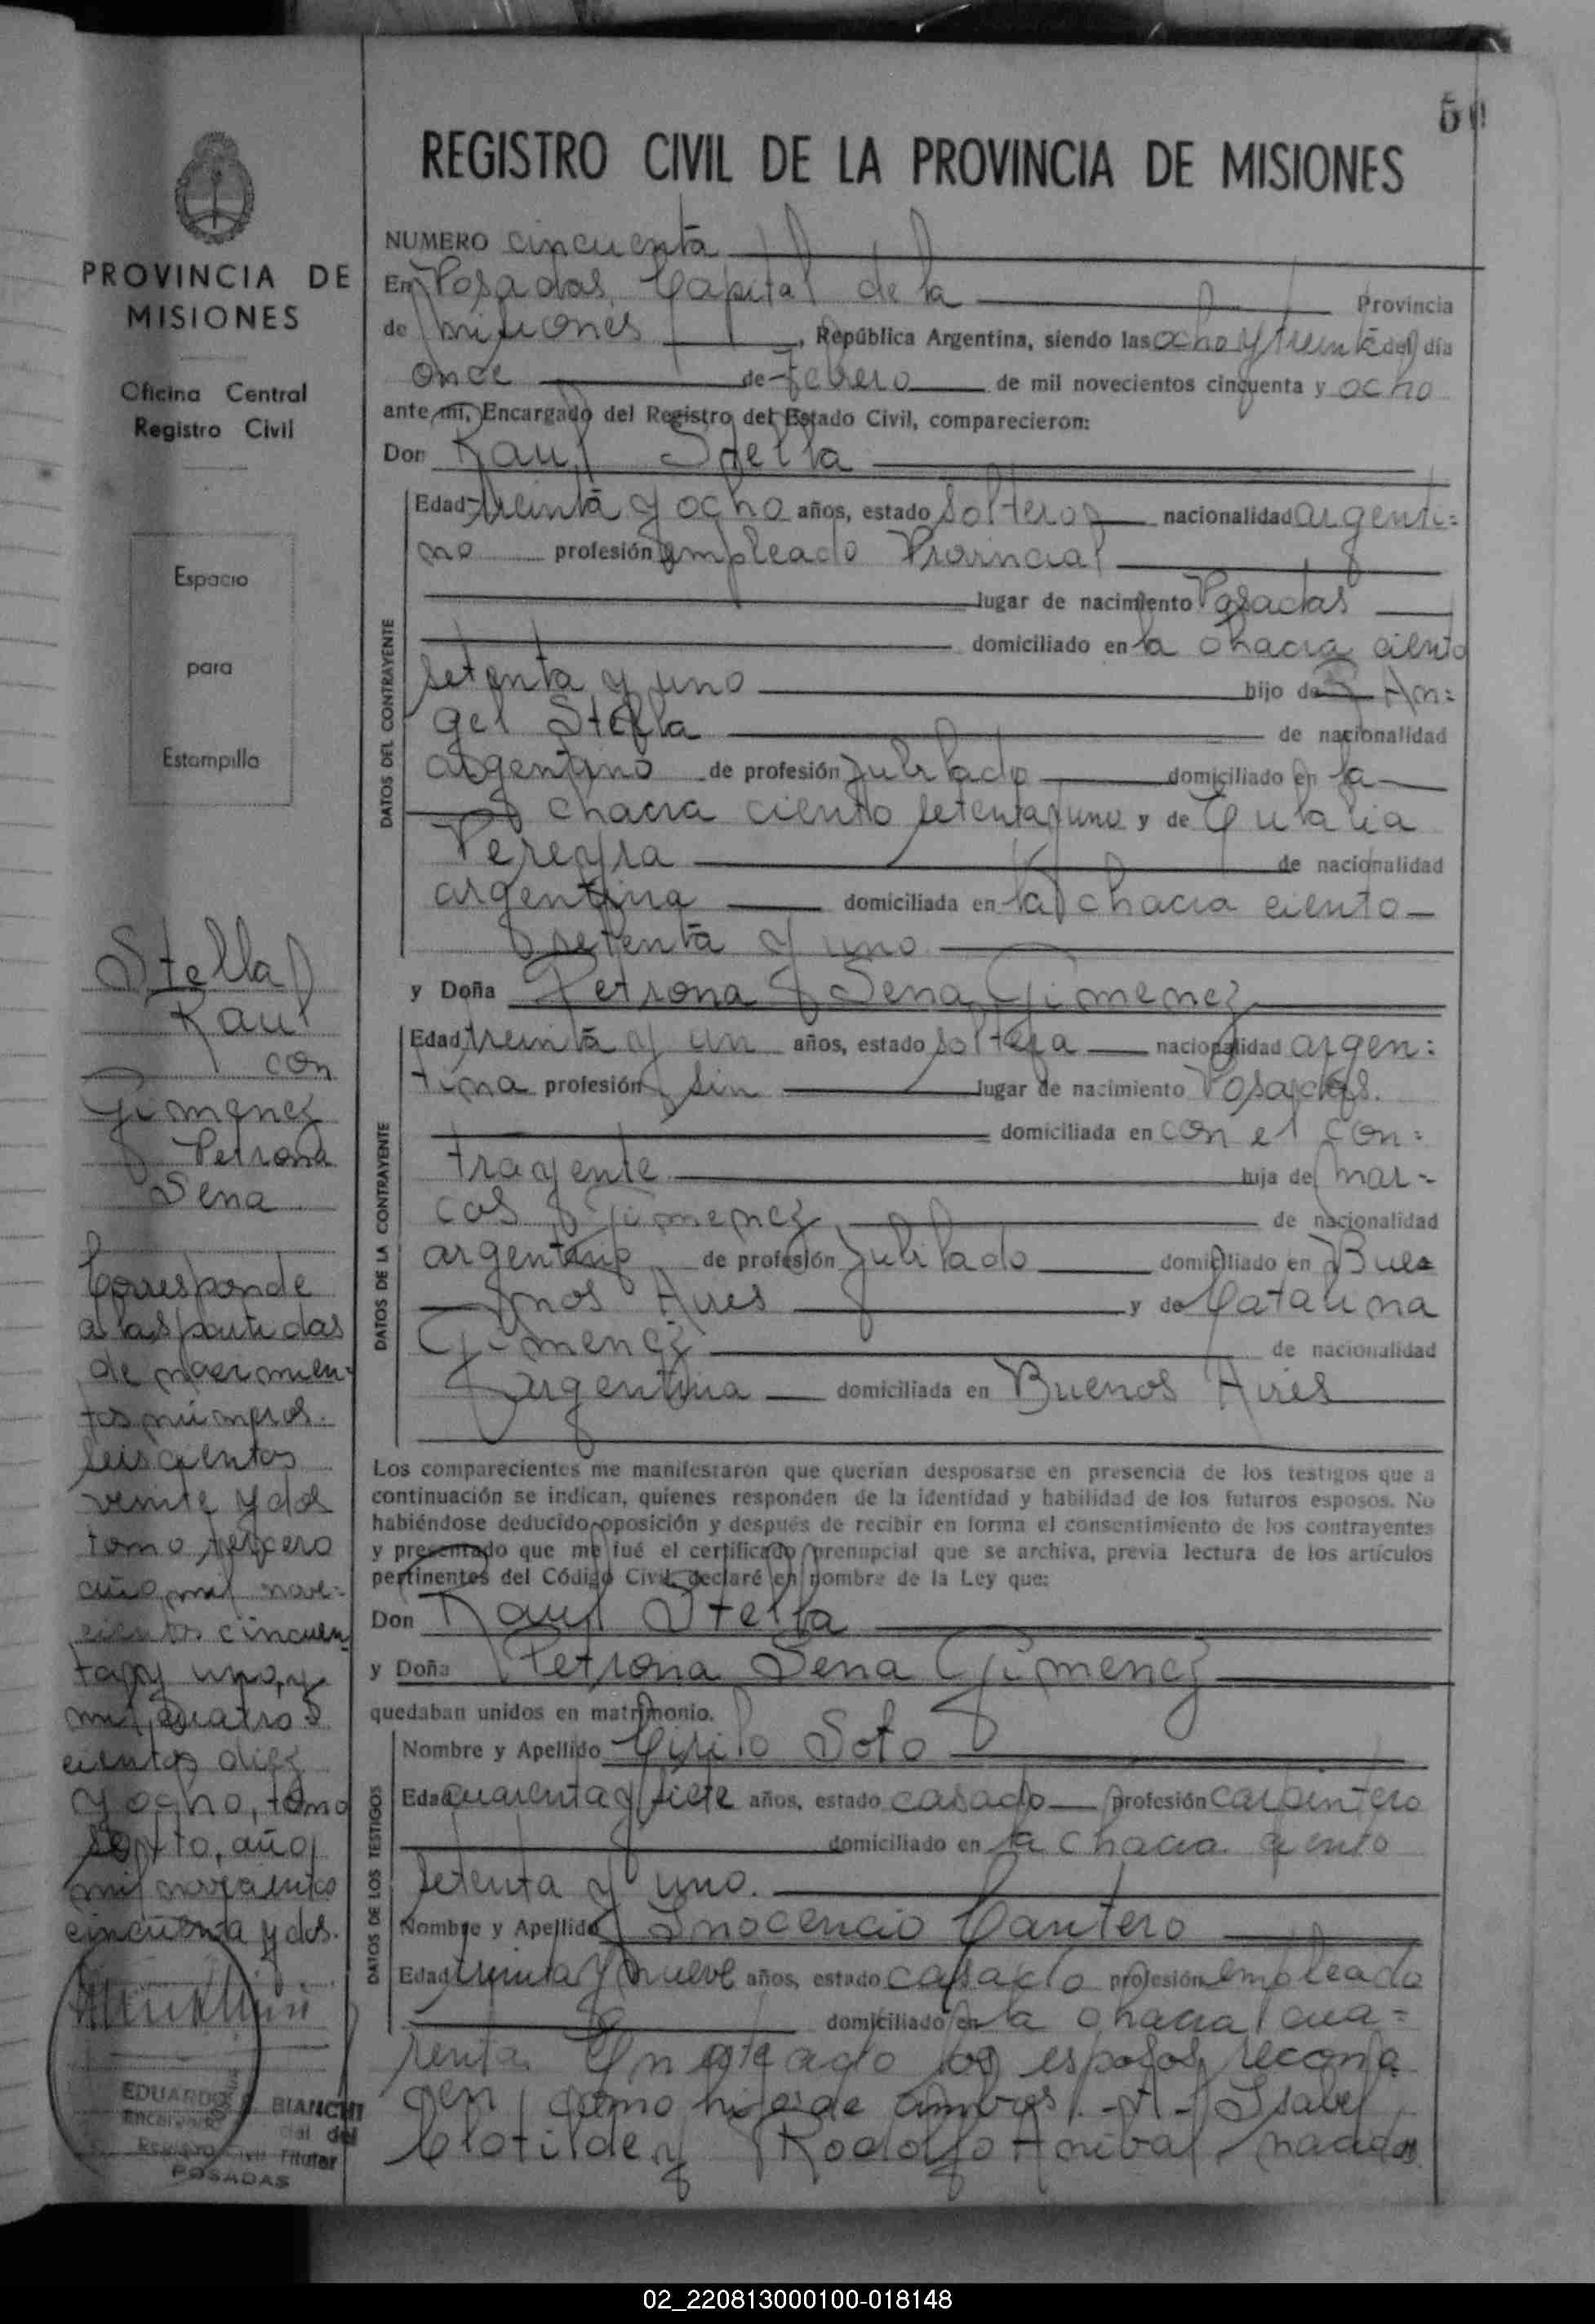 50
REGISTRO CIVIL DE LA PROVINCIA DE MISIONES
PROVINCIA DE
MISIONES
Oficina Central
Registro Civil
Espacio
para
Estampilla
Stella
Raul
con
Gimenez
Petrona
Sena
Corresponde
a las partidas
de nacimien-
tos números
seiscientos
veinte y dos
tomo tercero
año mil nove-
cientos cincuen
ta y uno, y
mil cuatro
cientos diez
y ocho, tomo
septo, año
mil novecientos
cincuenta y dos.
EDUARDO BIANCHI
Encargado cial del
Registro Civil Titular
POSADAS
NUMERO cincuenta
En Posadas, Capital de la Provincia
de Misiones, República Argentina, siendo las ocho y treinta del día
once de Febrero de mil novecientos cincuenta y ocho
ante mí, Encargado del Registro del Estado Civil, comparecieron:
Don Raul Stella
DATOS DEL CONTRAYENTE
Edad treinta y ocho años, estado soltero nacionalidad argenti=
no profesión empleado Provincial
lugar de nacimiento Posadas
domiciliado en la chacra ciento
setenta y uno hijo de An=
gel Stella de nacionalidad
argentino de profesión Jubilado domiciliado en la
chacra ciento setenta y uno y de Eulalia
Pereyra de nacionalidad
argentina domiciliada en la chacra ciento
setenta y uno
y Doña Petrona Sena Gimenez
DATOS DE LA CONTRAYENTE
Edad treinta y un años, estado soltera nacionalidad argen=
tina profesión sin lugar de nacimiento Posadas.
domiciliada en con el con=
trayente hija de Mar=
cos Gimenez, de nacionalidad
argentino de profesión Jubilado domiciliado en Bue=
nos Aires y de Catalina
Gimenez de nacionalidad
argentina domiciliada en Buenos Aires
Los comparecientes me manifestaron que querían desposarse en presencia de los testigos que a
continuación se indican, quienes responden de la identidad y habilidad de los futuros esposos. No
habiéndose deducido oposición y después de recibir en forma el consentimiento de los contrayentes
y presentado que me fué el certificado prenupcial que se archiva, previa lectura de los artículos
pertinentes del Código Civil, declaré en nombre de la Ley que:
Don Raul Stella
y Doña Petrona Sena Gimenez
quedaban unidos en matrimonio.
DATOS DE LOS TESTIGOS
Nombre y Apellido Cirilo Soto
Edad cuarenta y siete años, estado casado profesión carpintero
domiciliado en la chacra ciento
setenta y uno.
Nombre y Apellido Inocencio Cantero
Edad treinta y nueve años, estado casado profesión empleado
domiciliado en la chacra cua=
renta. En este acto los esposos recono
cen como hijos de ambos a Isabel
Clotilde y Rodolfo Anibal, nacidos
02_220813000100-018148